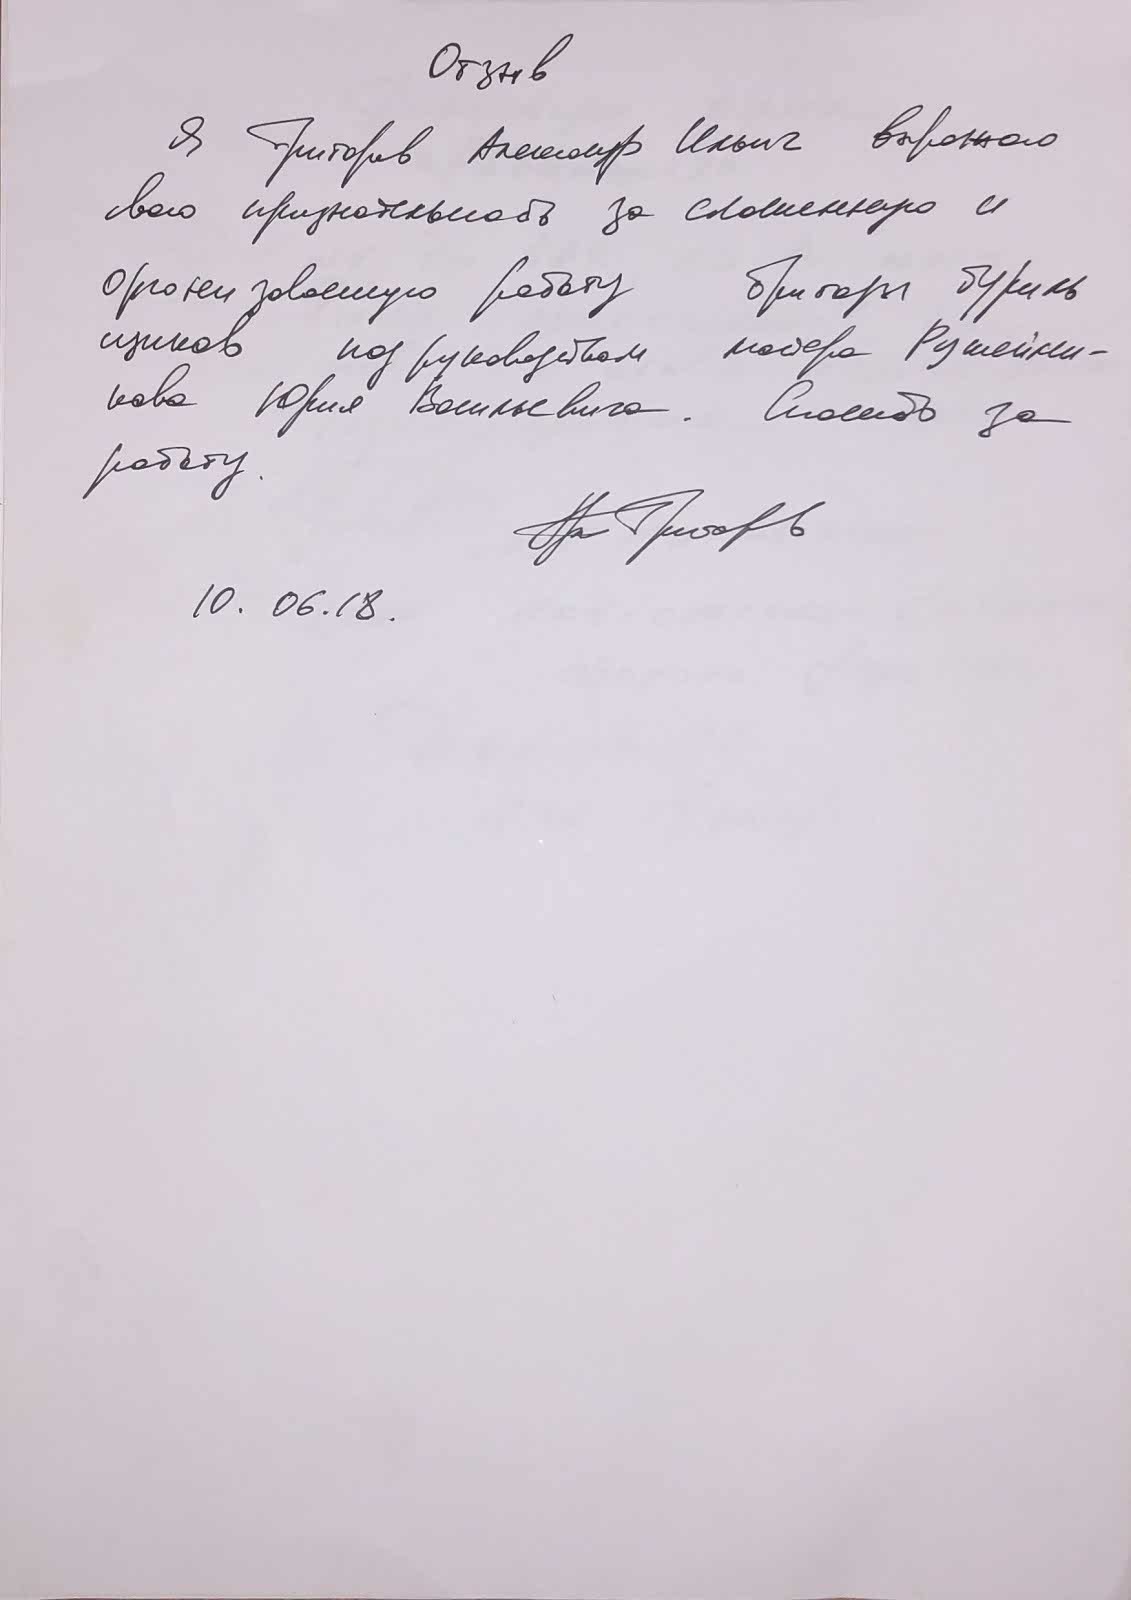 Отзыв
Я Григоров Александр Ильич выражаю
свою признательность за слаженную и
организованную работу бригады буриль
щиков под руководством мастера Ружейни-
кова Юрия Васильевича. Спасибо за
работу.
Григоров
10. 06.18.